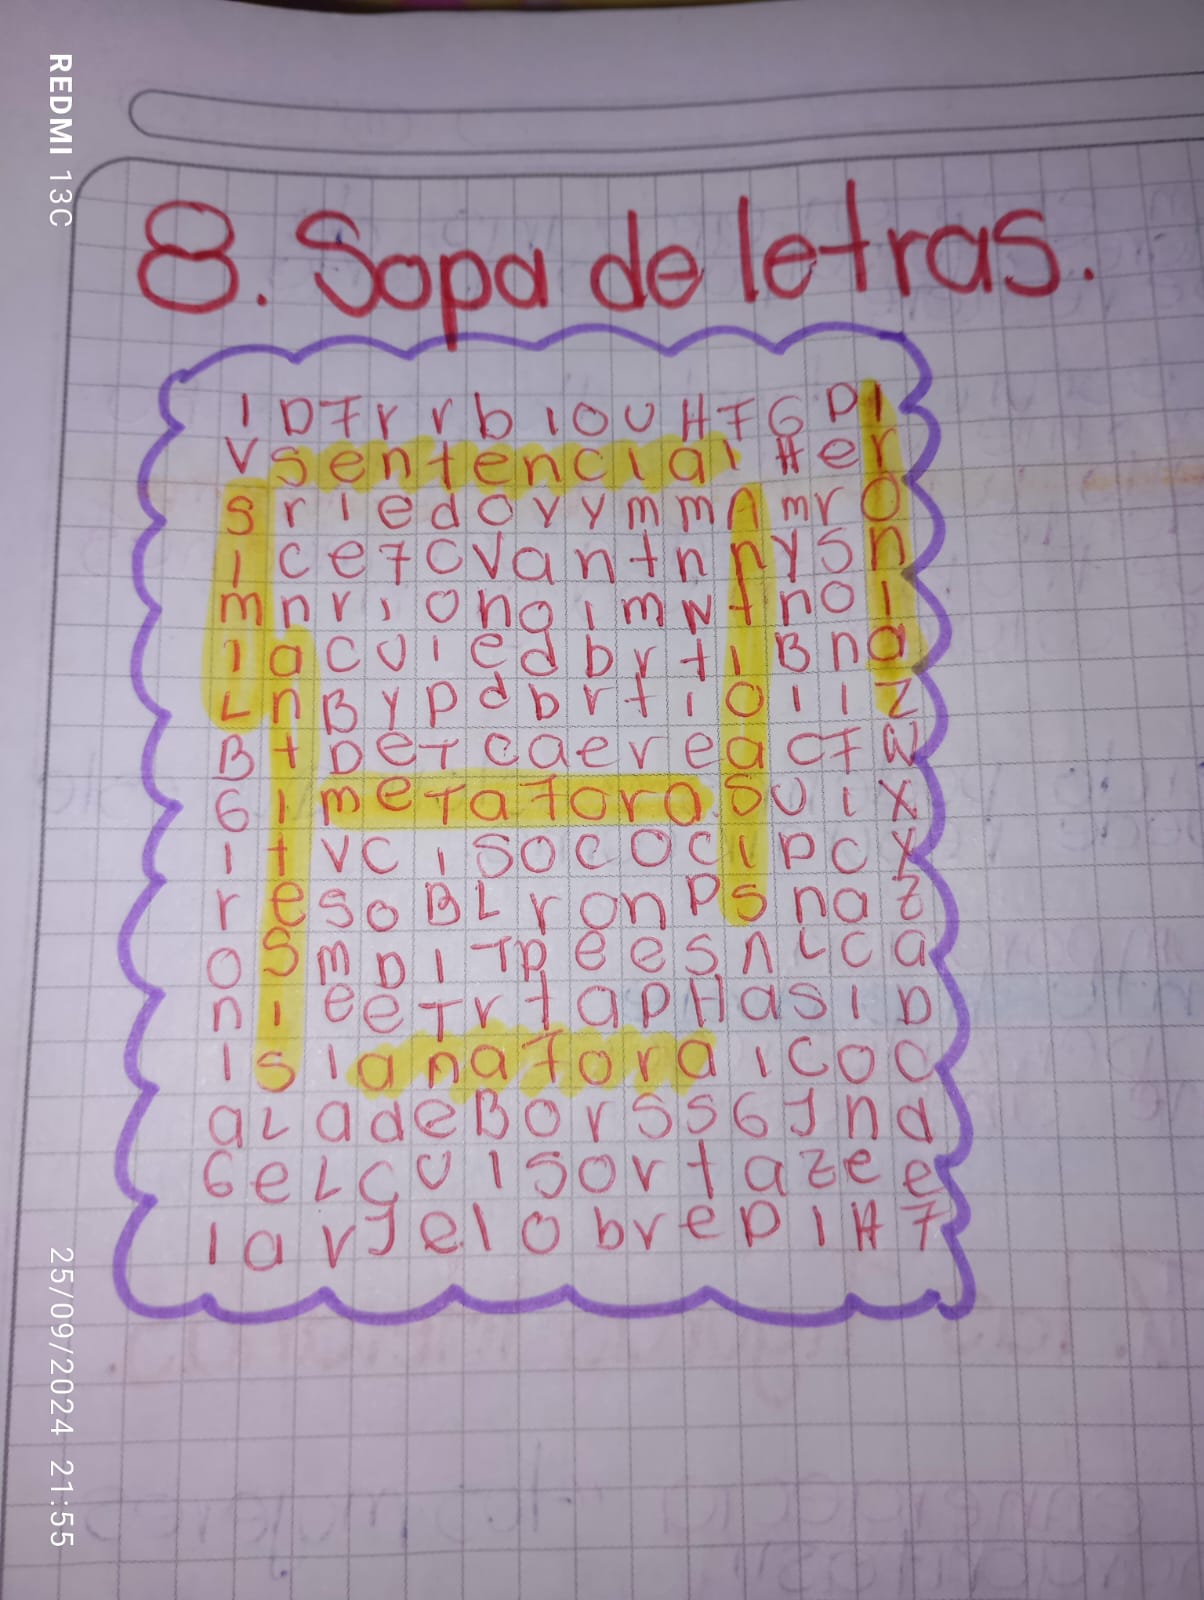 8. Sopa de letras.
I D F r r b I O U H F G D I
V s e n t e n c i a l H e r
S r i e d o v y m m A m r O
I c e f c v a n t n n y S n
m n r i o n g i m N t n o i
I a c u i e d b r t i B n a
L n B y p d b r t i O I I Z
B t D e T c a e r e a C F W
G I m e T a f o r a S U i X
I t V C I S O C O C I P C X
r e s o B L r o n P s n a Z
O S m D I T p e e s n L c a
n I e e T r t a p H a s I D
I S I a n a f o r a I C O C
a L a d e B o r s s G J n d
G e L C U I S o r t a z e e
I a r J e l o b r e D I H F
REDMI 13C
25/09/2024 21:55